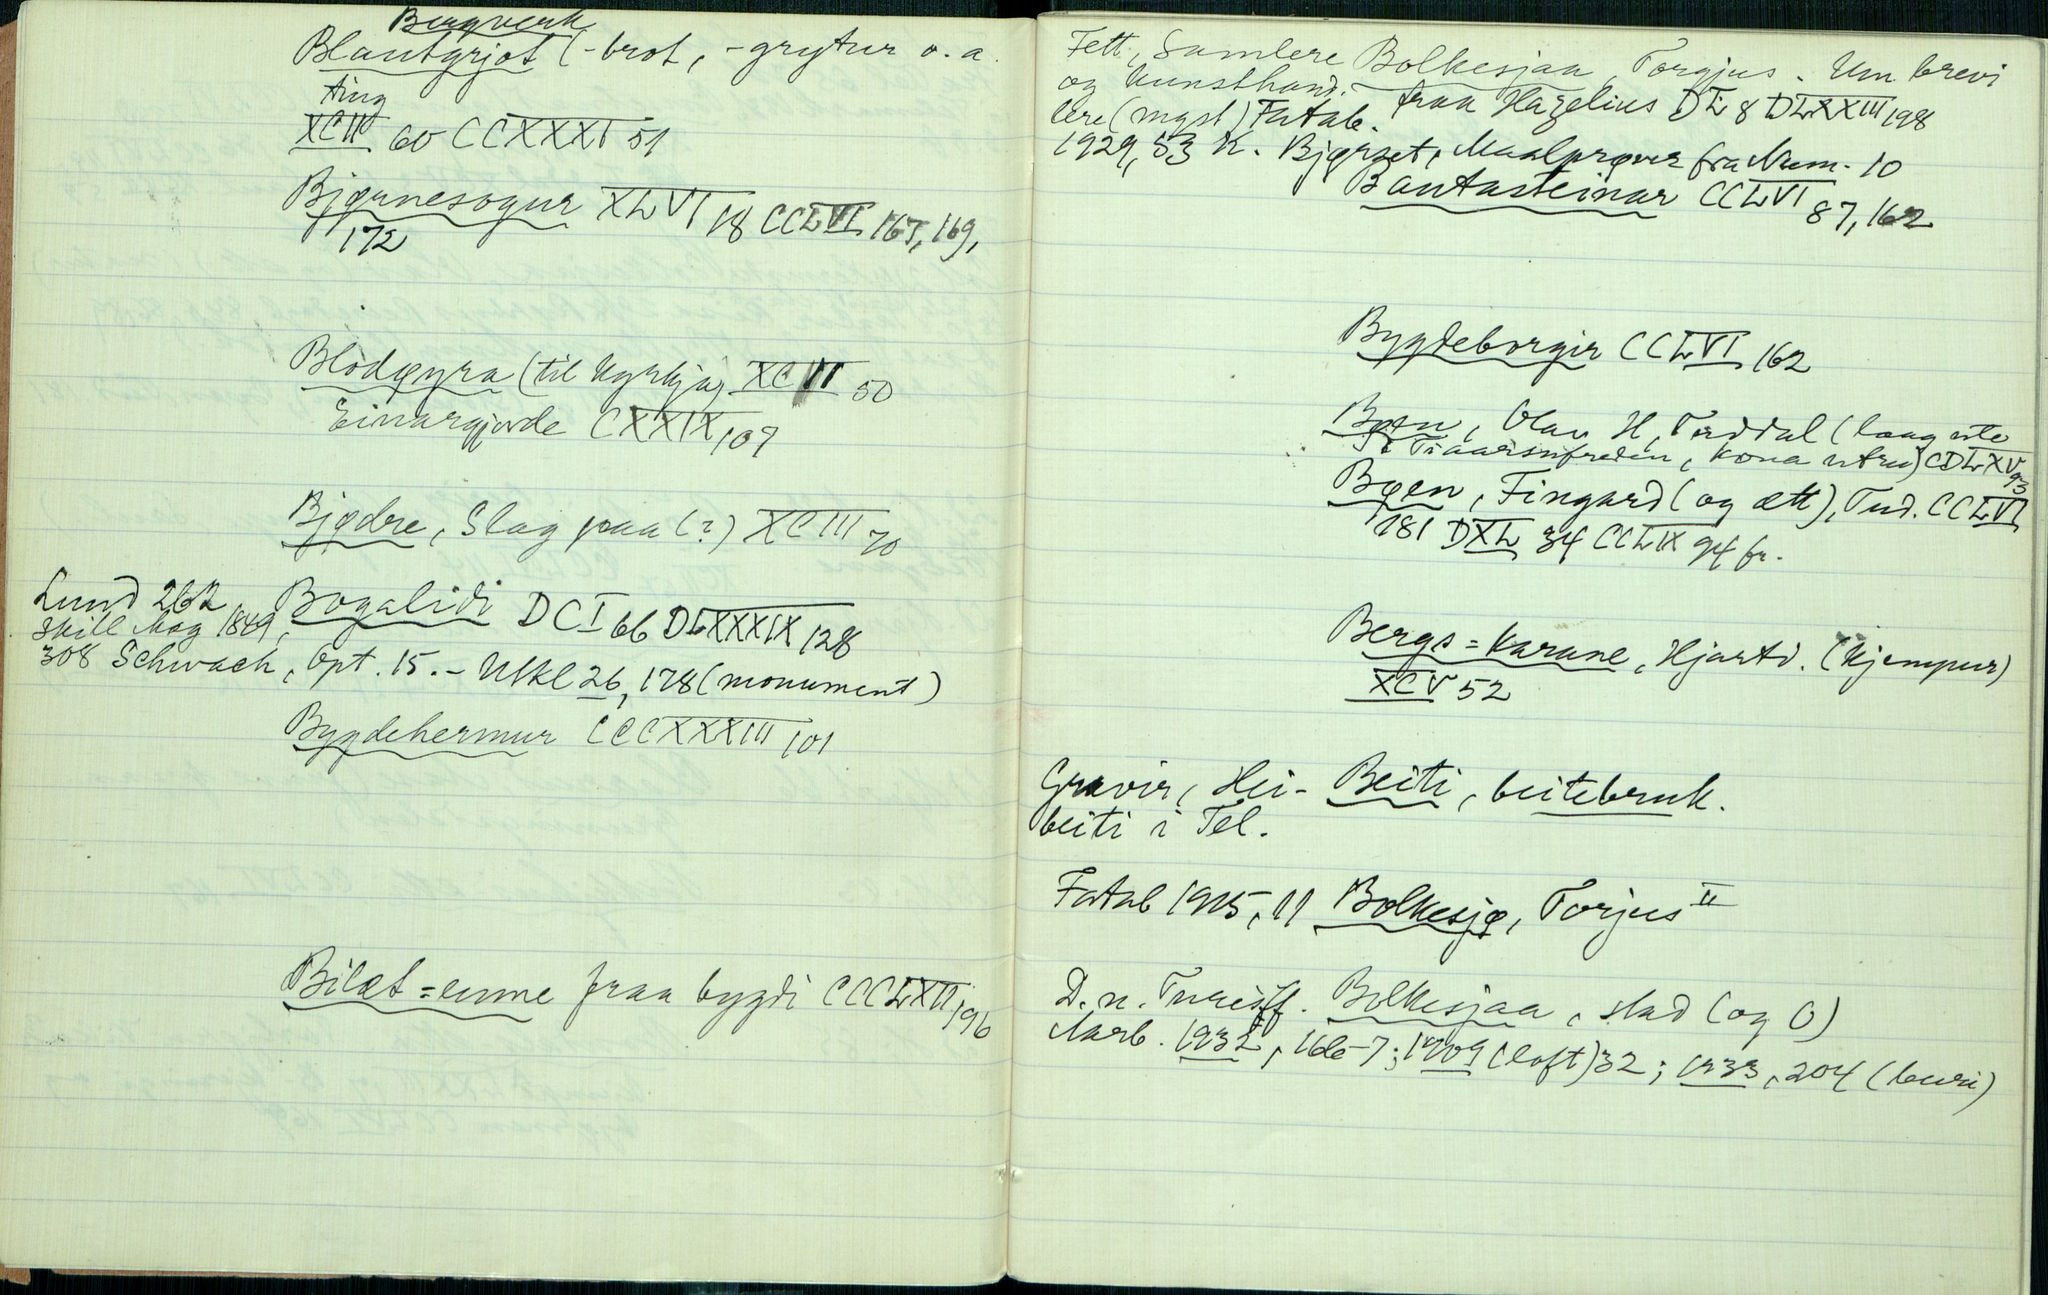 Bergverk
Blautgrjot (-brot, -grytur o. a.
ting
XCII 60 CCXXXI 51
Bjørnesogur XLVI 18 CCLVI 167, 169,
172
Blodøyra (til kyrkja) XCVI 50
Einargjorde CXXIX 107
Bjødre, Slag paa (?) XCIII 70
Lund 262 Bogalidi DCI 66 DLXXXIX 128
Skill Mag 1849,
308 Schwach, Opt. 15. - Utkl 26, 178 (monument)
Bygdehermur CCCXXXIII 101
Bilæt=emne fraa bygdi CCCLXII 196
Fett, Samlere Bolkesjaa, Torgjus. Um brevi
og kunsthand- fraa Hazelius DL 8 DLXXIII 198
lere (mgsl) Fatab.
1929, 53 K. Bjørset, Maalprøver fra Num. 10
Bautasteinar CCLVI 87, 162
Bygdeborgir CCLVI 162
Bøen, Olav H, Tuddal (laag ute
i Tiaarsufreden, kona utru) CDLXV 93
Bøen, Fingard (og ætt), Tud. CCLVI
181 DXL 34 CCLIX 94 fr.
Bergs=karane, Hjartd. (kjempur)
XCV 52
Gravir, Hei- Beiti, beitebruk.
beiti i Tel.
Fatab 1915, 11 Bolkesjø, Torjus II
D. n. Turistf. Bolkesjaa, stad (og O)
Aarb. 1932, 166-7; 1909 (loft) 32; 1933, 204 (buri)